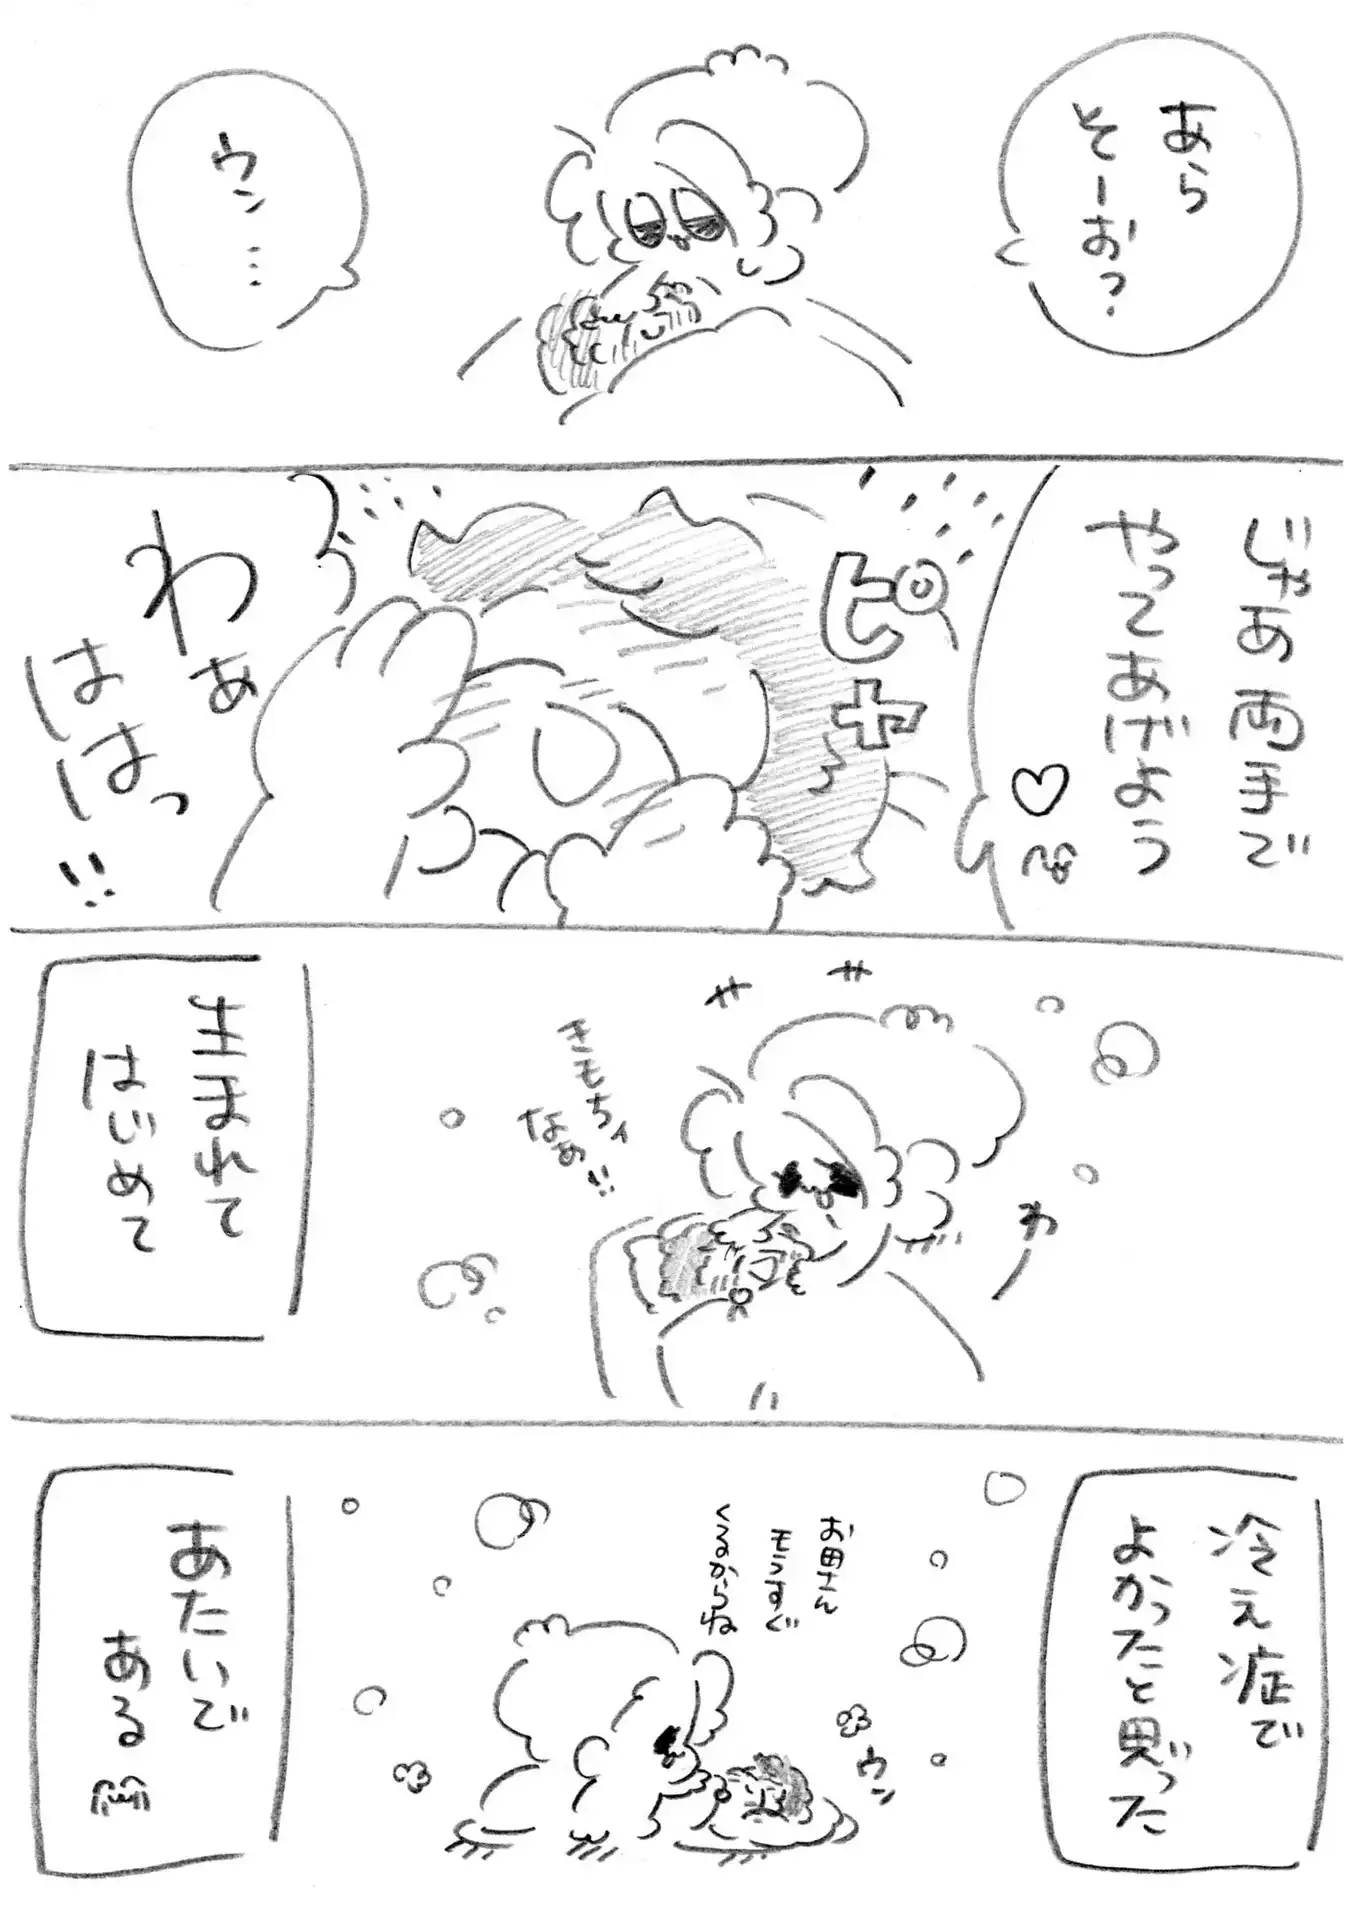 あら
そーお?
ウン…
じゃあ両手で
やってあげよう♡
ピャ
わぁ
ははっ!!
きもちぃ
なぁ!!
わ
生まれて
はじめて
冷え症で
よかったと思った
お母さん
もうすぐ
くるからね
ウン
あたいで
ある